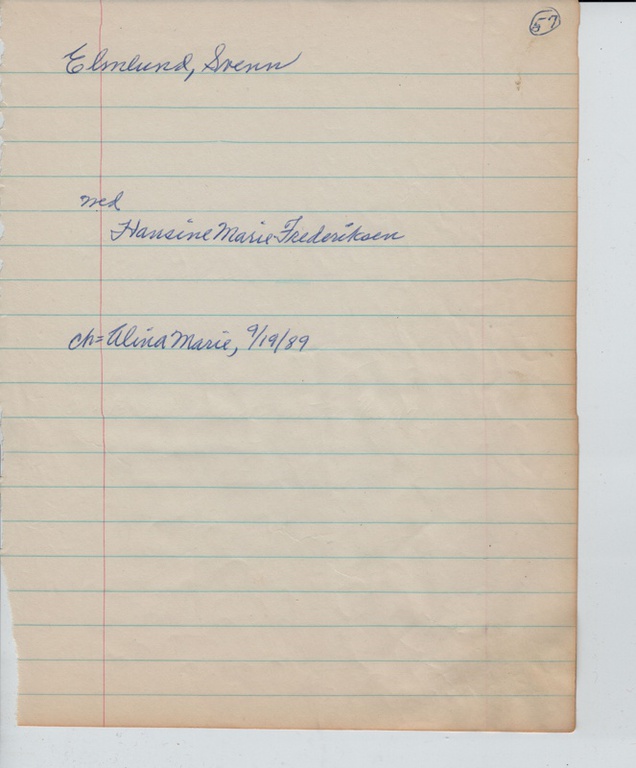 57
Elmlund, Svenn
med
Hansine Marie Frederiksen
ch= Alina Marie, 9/19/89